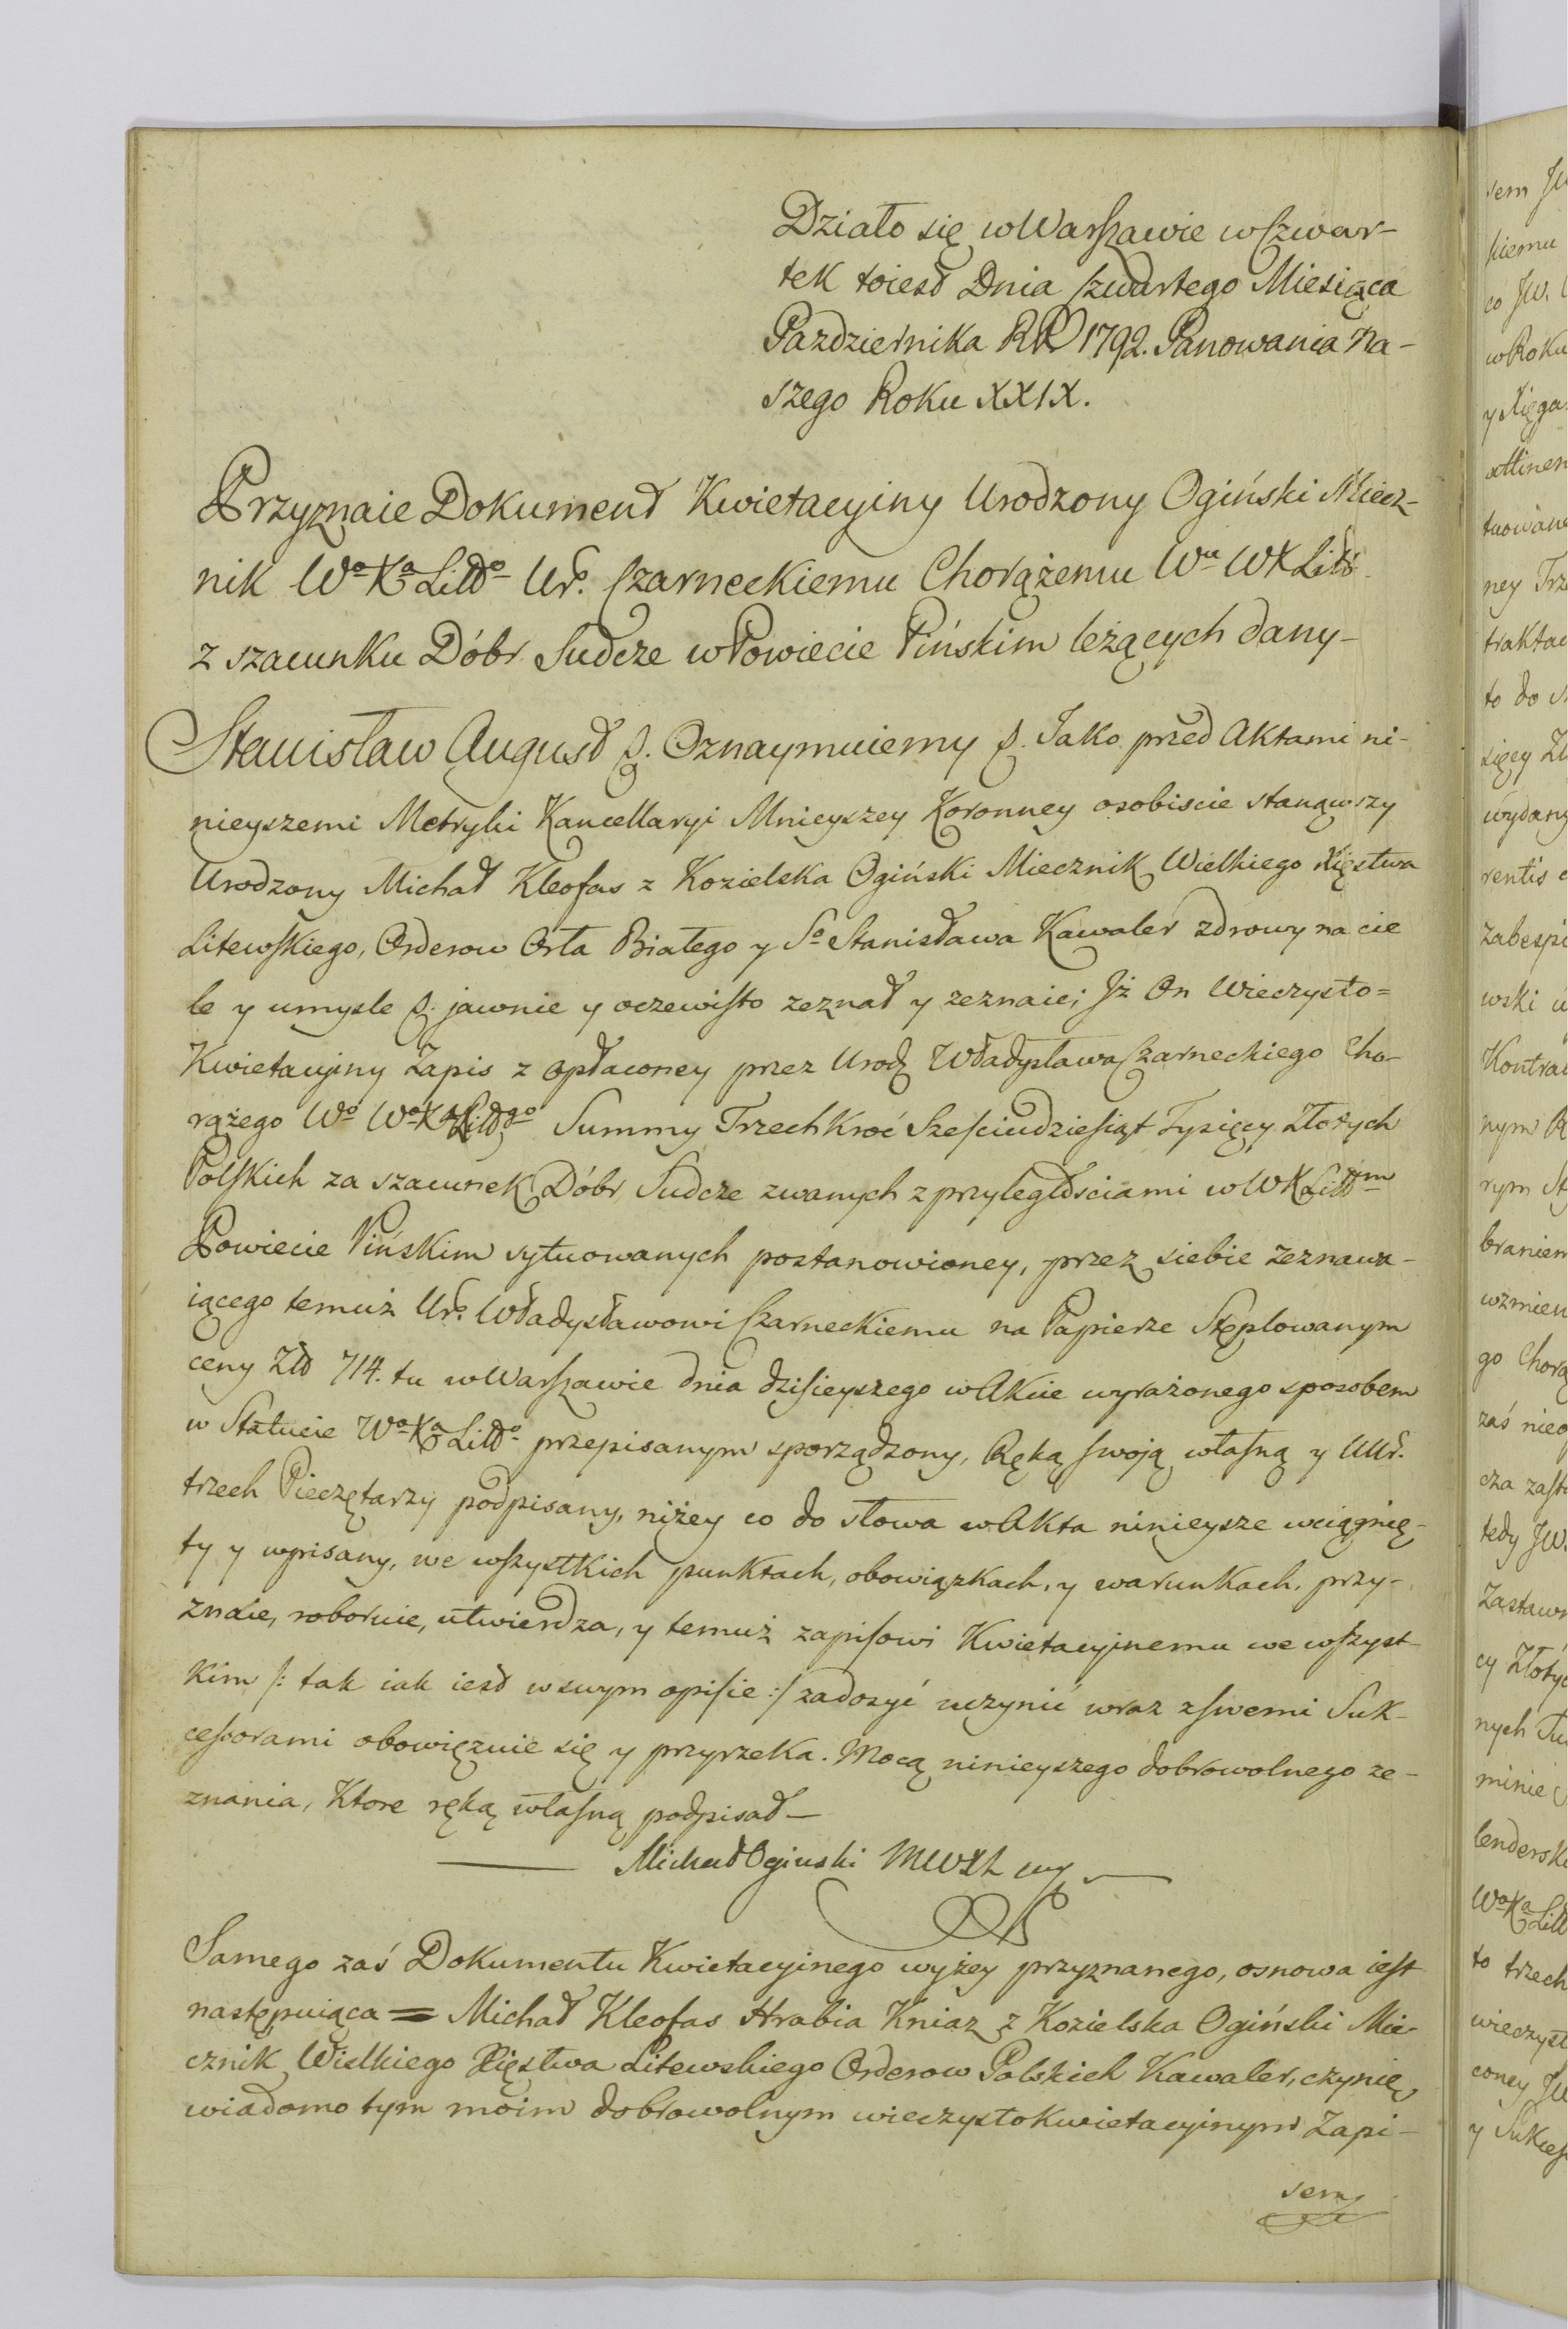 Działo się w Warszawie w Czwar-
tek toiest Dnia Czwartego Miesiąca
Pazdziernika RP 1792. Panowania Na-
szego Roku XXIX.
Przyznaie Dokument Kwietacyiny Urodzony Ogiński Miecz-
nik Wº Kª Littº Ur. Czarneckiemu Chorążemu Wu WK Litt
z szacunku Dóbr Sudcze w Powiecie Pińskim leżących dany-
Stanisław August &. Oznaymuiemy &. Jako przed Aktami ni-
nieyszemi Metryki Kancellaryi Mnieyszey Koronney osobiscie stanąwszy
Urodzony Michał Kleofas z Kozielska Ogiński Miecznik Wielkiego Xięstwa
Litewskiego, Orderow Orła Białego y Sº Stanisława Kawaler zdrowy na cie
le y umysle &. jawnie y oczewisto zeznał y zeznaie; Iż On Wieczysto=
Kwietacyiny Zapis z opłaconey przez Urodz Władysława Czarneckiego Cho-
rążego Wº WºKª Littgo Summy Trzechkroć Sześciudziesiąt Tysięcy Złotych
Polskich za szacunek Dóbr Sudcze zwanych z przyległościami w WK Littm
Powiecie Pińskim sytuowanych postanowioney, przez siebie zeznawa-
iącego temuż Urº Władysławowi Czarneckiemu na Papierze Stęplowanym
ceny Zło 714. tu w Warszawie dnia dzisieyszego w Akcie wyrażonego sposobem
w Statucie Wº Kª Littº przepisanym sporządzony, Ręką swoją własną y UUr.
trzech Pieczętarzy podpisany, niżey co do słowa w Akta ninieysze wciągnię-
ty y wpisany, we wszystkich punktach, obowiązkach, y warunkach, przy-
znaie, roboruie, utwierdza, y temuż zapisowi Kwietacyjnemu we wszyst-
kim /: tak iak iest w swym opisie :/ zadosyć uczynić wraz z swemi Suk-
cessorami obowięzuie się y przyrzeka. Mocą ninieyszego dobrowolnego ze-
znania, Ktore ręką własną podpisał —
Michał Oginski MWXL mp
Samego zaś Dokumentu Kwietacyinego wyżey przyznanego, osnowa iest
następuiąca = Michał Kleofas Hrabia Kniaz z Kozielska Ogiński Mie-
cznik Wielkiego Xięstwa Litewskiego Orderow Polskich Kawaler, czynię
wiadomo tym moim dobrowolnym wieczystokwietacyinym Zapi-
sem